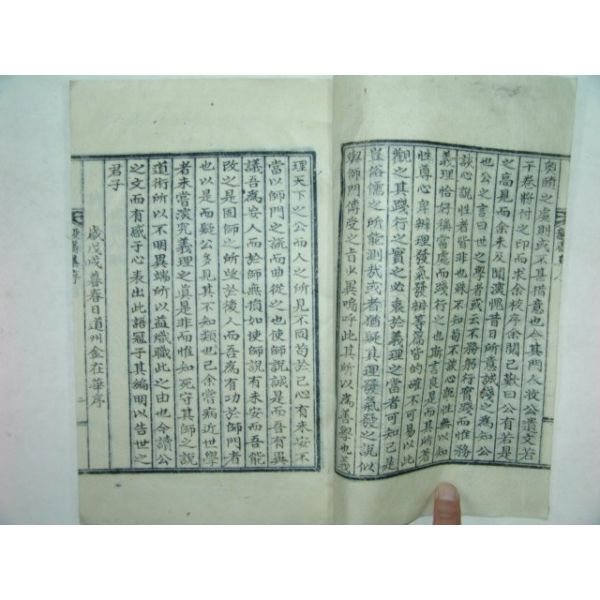 理天下之公而人之所見不同苟於己心有未安不
當以師門之說而曲從之也使師說誠是而吾有異
議吾爲妄人而於師無損如使師說有未安而吾能
改之是固師之所望於後人而吾爲有功於師門者
也以是而觀公多見其不知類也已余常病近世學
者未嘗深究義理之眞是非而惟知死守其師之說
道術所以不明異端所以益熾職此之由也今讀公
之文而有感于心表出此語冠于其編明以告世之
君子
歲戊戌暮春日道州金在華序
之處則或不其措意也公其胤 公遺文若
干卷將付之印而求余校序余閱已歎曰公有若是
之高見而余未及聞深愧昔日所意誠淺之爲知公
也公之言曰世之學者或云不務躬行實踐而惟務
談心說性者皆非也殊不知苟不談心說性無以知
義理恰好稱當處而踐行之也斯言良是而其所著
性尊心卑辨理發氣發辨等篇皆的確不可易以此
觀之其踐行之實必衷於義理之當者可知已是
豈俗儒之所能測哉或者猶疑其理發氣發之說似
師門傳受之旨 異嗚呼此其所以爲善學也義